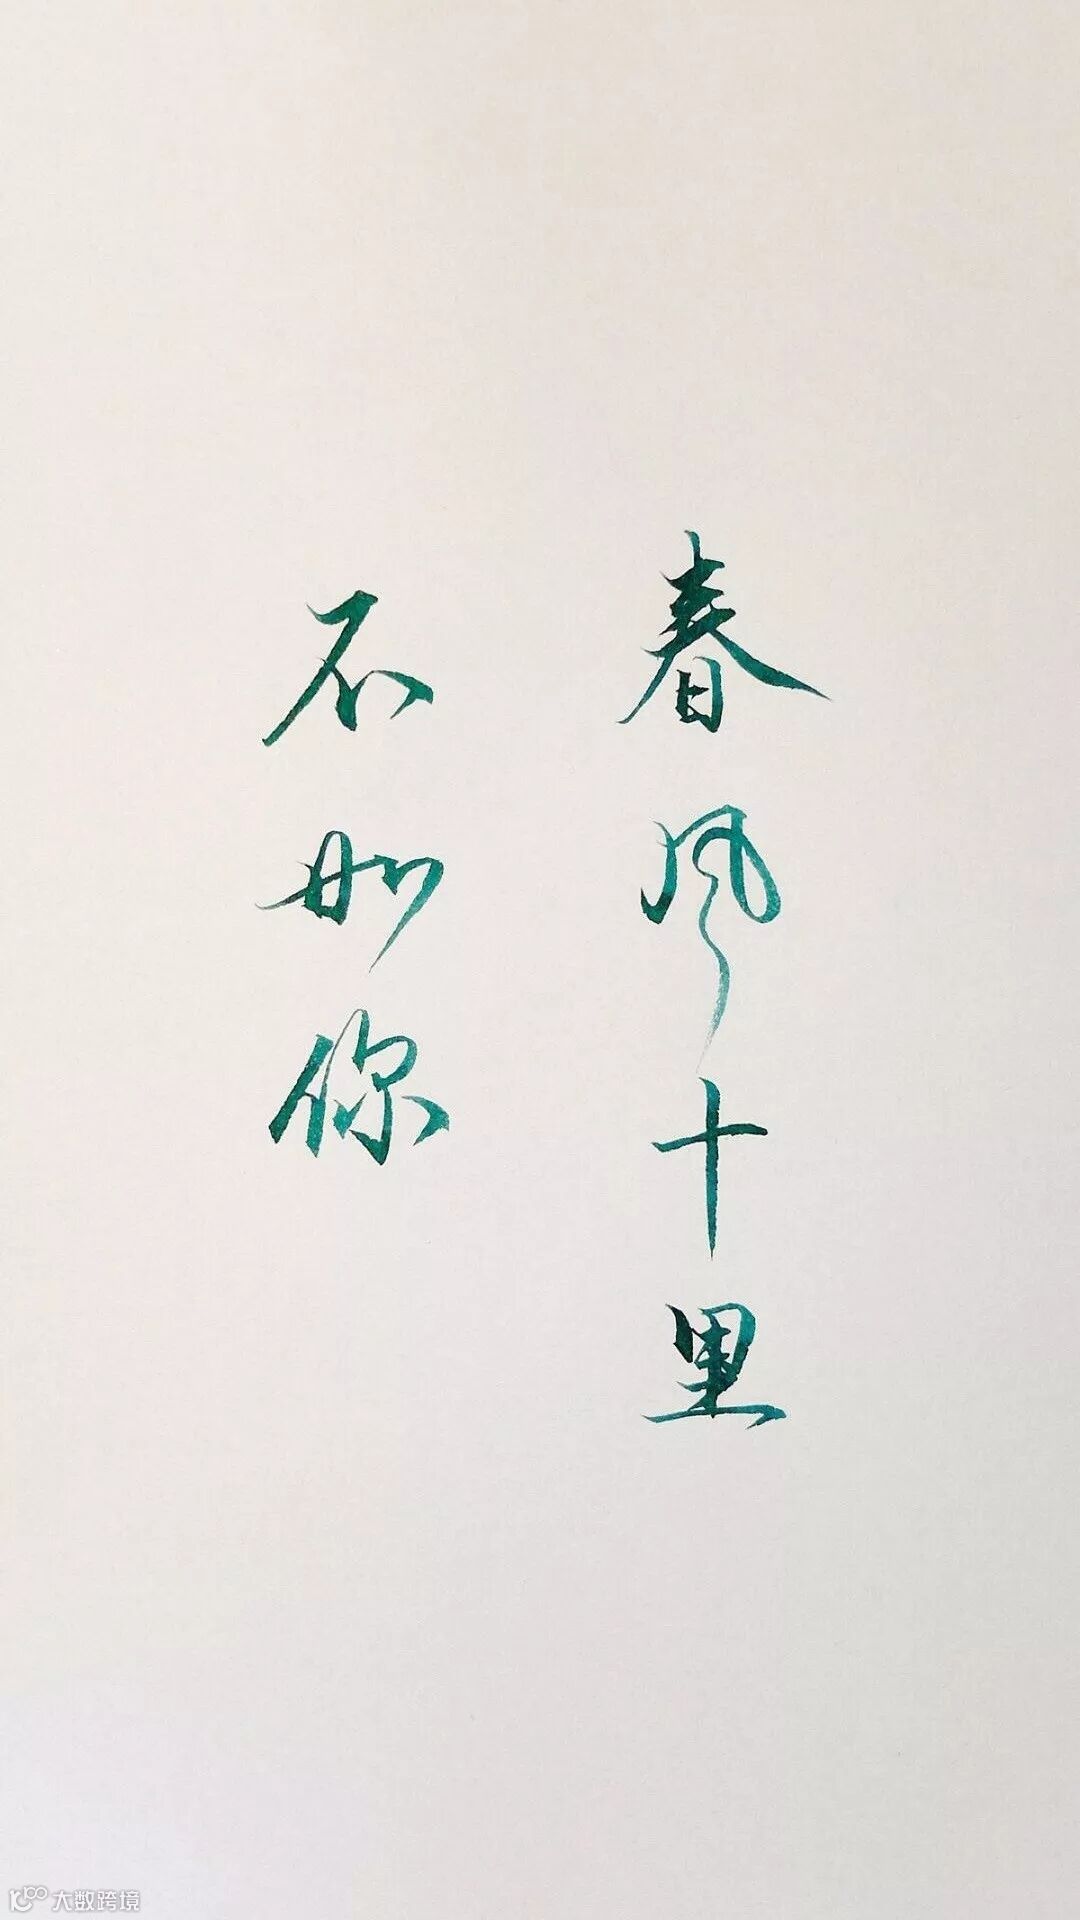 春风十里
不如你
大数跨境